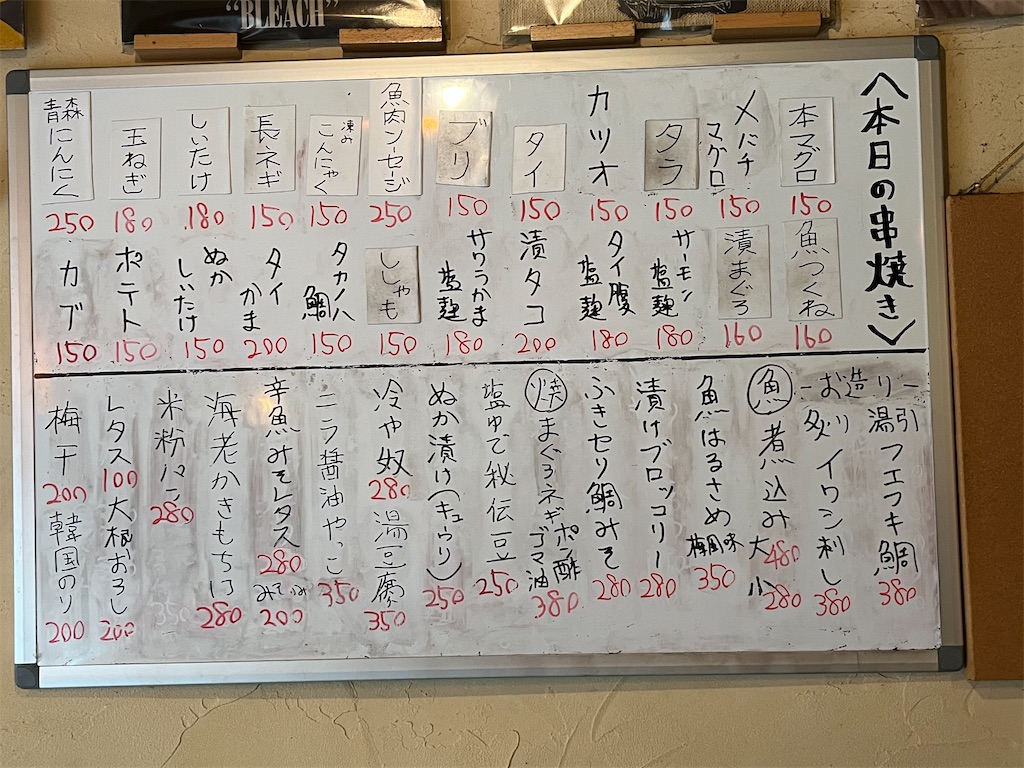 "BLEACH"
〈本日の串焼き〉
本マグロ
150
メバチマグロ
150
タラ
150
カツオ
150
タイ
150
ブリ
150
魚肉ソーセージ
250
凍みこんにゃく
150
長ネギ
150
しいたけ
180
玉ねぎ
180
青森にんにく
250
魚つくね
160
漬まぐろ
160
サーモン塩麹
180
タイ腹塩麹
180
漬タコ
200
サワラかま塩麹
180
ししゃも
150
タカノハ鯛
150
タイかま
200
ぬかしいたけ
150
ポテト
150
カブ
150
-お造り-
湯引フエフキ鯛
380
炙りイワシ刺し
380
魚煮込み
大480
小280
魚はるさめ
梅風味
350
漬けブロッコリー
280
ふきセリ鯛みそ
280
焼まぐろネギ
ポン酢
ゴマ油
380
塩ゆで秘伝豆
250
ぬか漬け(キュウリ)
250
冷や奴
280
湯豆腐
350
ニラ醤油やっこ
350
辛魚みそレタス
280
200
海老かきもち
280
米粉パン
280
350
レタス
100
大根おろし
200
梅干
200
韓国のり
200